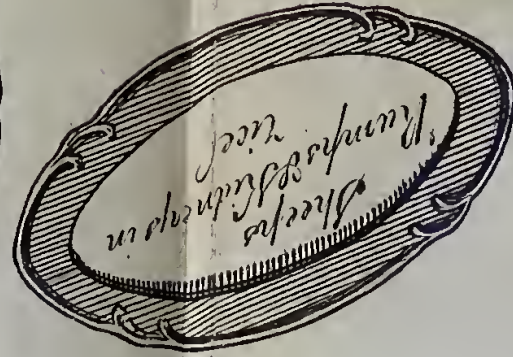 Sheeps
Rumps & Kidneys in
rice